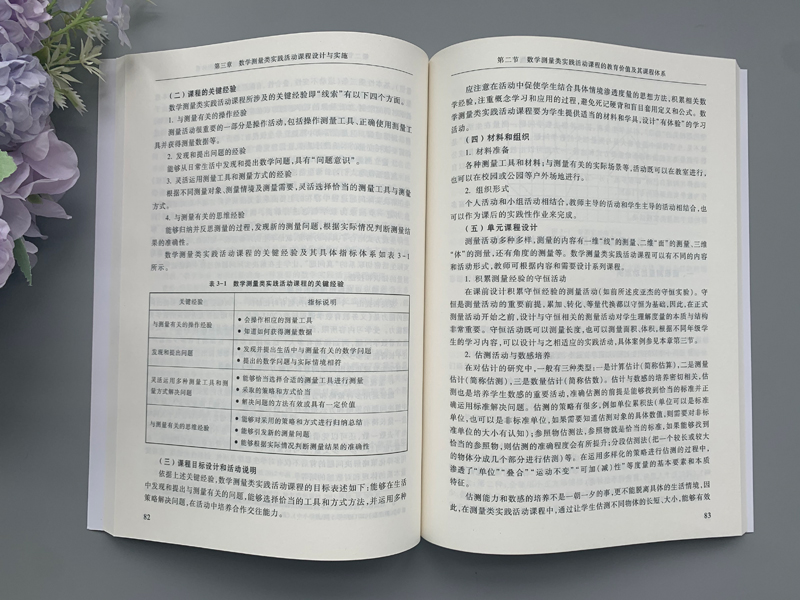 第三章 数学测量类实践活动课程设计与实施
（二）课程的关键经验
数学测量类实践活动课程所涉及的关键经验即“线索”有以下四个方面。
1. 与测量有关的操作经验
测量活动很重要的一部分是操作活动，包括操作测量工具、正确使用测量工
具并获得测量数据等。
2. 发现和提出问题的经验
能够从日常生活中发现和提出数学问题，具有“问题意识”。
3. 灵活运用测量工具和测量方式的经验
根据不同测量对象、测量情境及测量需要，灵活选择恰当的测量工具与测量
方式。
4. 与测量有关的思维经验
能够归纳并反思测量的过程，发现新的测量问题，根据实际情况判断测量结
果的准确性。
数学测量类实践活动课程的关键经验及其具体指标体系如表 3-1
所示。
表 3-1 数学测量类实践活动课程的关键经验
关键经验 指标说明
与测量有关的操作经验
● 会操作相应的测量工具
● 知道如何获得测量数据
发现和提出问题
● 发现并提出生活中与测量有关的数学问题
● 提出的数学问题与实际情境相符
灵活运用多种测量工具和测
量方式解决问题
● 能够恰当选择合适的测量工具进行测量
● 采取的策略和方式恰当
● 解决问题的方法有效或具有一定价值
与测量有关的思维经验
● 能够对采用的策略和方式进行归纳总结
● 能够引发新的测量问题
● 能够根据实际情况判断测量结果的准确性
（三）课程目标设计和活动说明
依据上述关键经验，数学测量类实践活动课程的目标表述如下：能够在生活
中发现和提出与测量有关的问题，能够选择恰当的工具和方式方法，并运用多种
策略解决问题，在活动中培养合作交往能力。
82
第二节 数学测量类实践活动课程的教育价值及其课程体系
应注意在活动中促使学生结合具体情境渗透度量的思想方法，积累相关数
学经验，注重概念学习和应用的过程，避免死记硬背和盲目套用定义和公式。数
学测量类实践活动课程要为学生提供适当的材料和学具，设计“有体验”的学习
活动。
（四）材料和组织
1. 材料准备
各种测量工具和材料；与测量有关的实际场景等，活动既可以在教室进行，
也可以在校园或公园等户外场地进行。
2. 组织形式
个人活动和小组活动相结合，教师主导的活动和学生主导的活动相结合，也
可以作为课后的实践性作业来完成。
（五）单元课程设计
测量活动多种多样，测量的内容有一维“线”的测量、二维“面”的测量、三维
“体”的测量，还有角度的测量等。数学测量类实践活动课程可以有不同的内容
和活动形式，教师可根据内容和需要设计系列课程。
1. 积累测量经验的守恒活动
在课前设计积累守恒经验的测量活动（如前所述皮亚杰的守恒实验）。守
恒是测量活动的重要前提，累加、转化、等量代换都以守恒为基础，因此，在正式
测量活动开始之前，设计与守恒相关的测量活动对学生理解度量的本质与结构
非常重要。守恒活动既可以测量长度，也可以测量面积、体积；根据不同年级学
生的学习内容，可以设计与之相适应的实践活动，具体案例参见本章第三节。
2. 估测活动与数感培养
在对估计的研究中，一般有三种类型：一是计算估计（简称估算），二是测量
估计（简称估测），三是数量估计（简称估数）。估计与数感的培养密切相关，估
测也是培养学生数感的重要活动，准确估测的前提是能够找到恰当的标准并正
确运用标准解决问题。估测的策略有很多，例如单位累积法（单位可以是标准
单位，也可以是非标准单位，如果需要知道估测对象的具体数值，则需要对非标
准单位的大小有认知）；参照物估测法，参照物就是恰当的标准，如果能够找到
恰当的参照物，则估测的准确程度会有所提升；分段估测法（把一个较长或较大
的物体分成几个部分进行估测）等。在运用多样化的策略进行估测的过程中，
渗透了“单位”“叠合”“运动不变”“可加（减）性”等度量的基本要素和本质
特征。
估测能力和数感的培养不是一朝一夕的事，更不能脱离具体的生活情境，因
此，在测量类实践活动课程中，通过让学生估测不同物体的长短、大小，能够有效
83